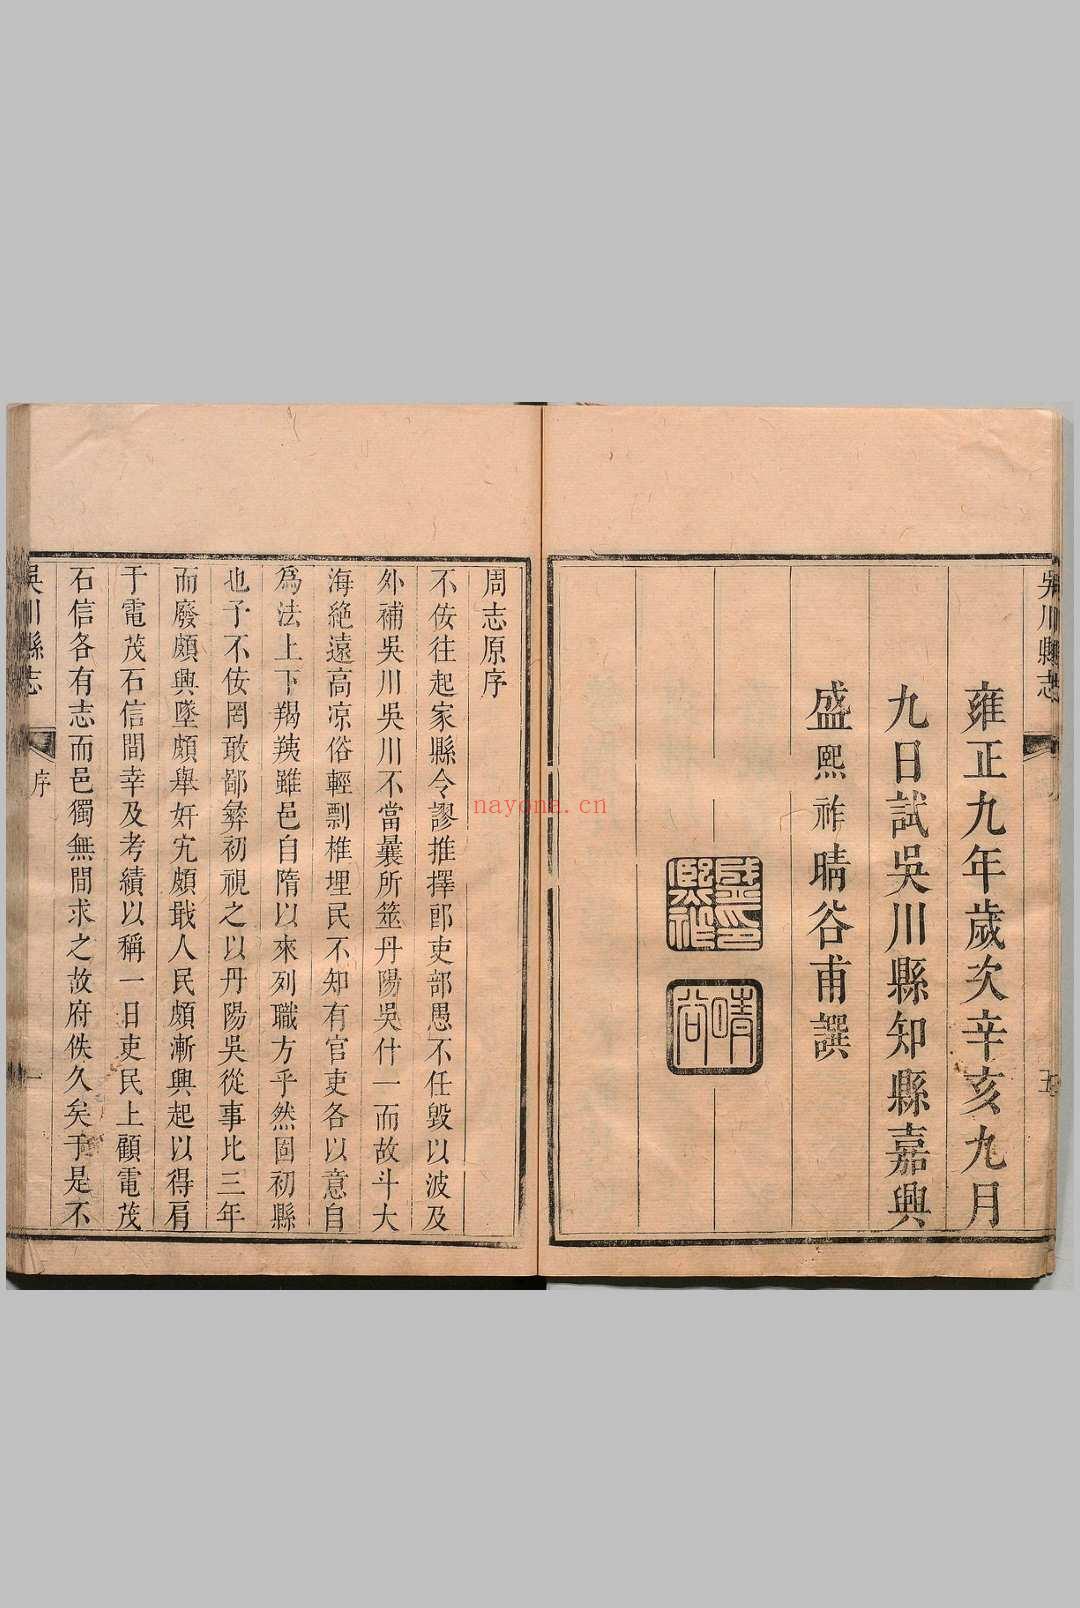 吳川縣志
雍正九年歲次辛亥九月
九日試吳川縣知縣嘉興
盛熙祚晴谷甫譔
盛熙祚印
晴谷
五
周志原序
不侫往起家縣令謬推擇郎吏部愚不任毀以波及
外補吳川吳川不當曩所筮丹陽吳什一而故斗大
海絶遠高凉俗輕剽椎埋民不知有官吏各以意自
爲法上下羯羠雖邑自隋以來列職方乎然固初縣
也予不侫罔敢鄙彝初視之以丹陽吳從事比三年
而廢頗興墜頗舉奸宄頗戢人民頗漸興起以得肩
于電茂石信間幸及考績以稱一日吏民上顧電茂
石信各有志而邑獨無間求之故府佚久矣于是不
吳川縣志
序
一
nayona.cn